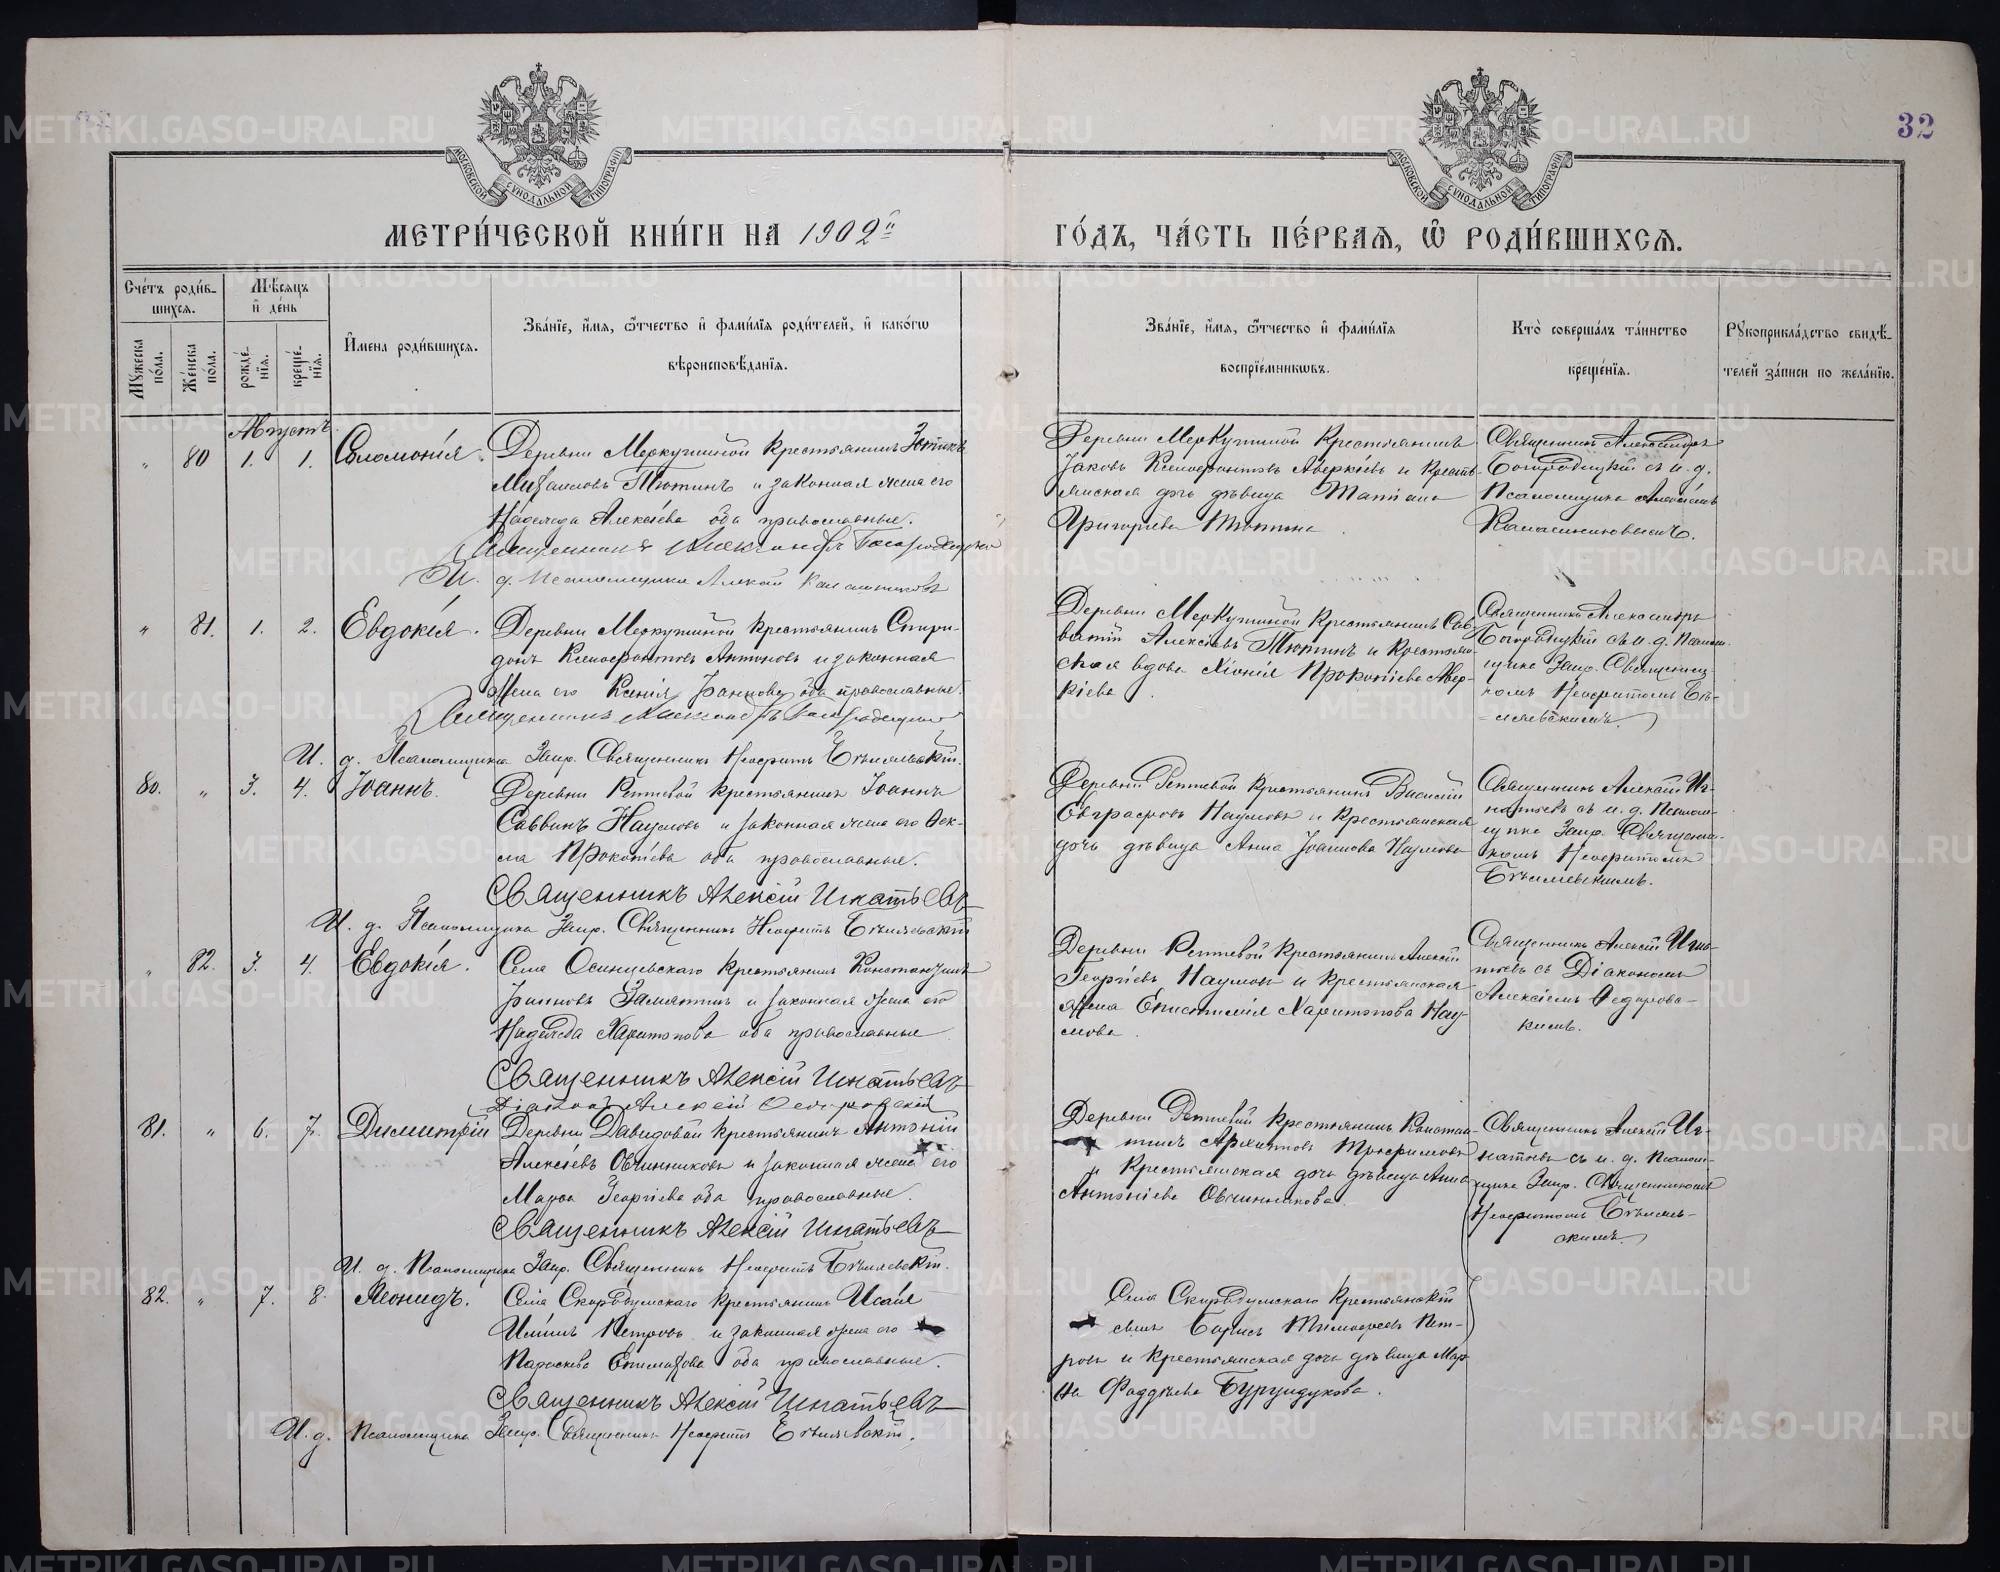 32
МЕТРИ́ЧЕСКОЙ КНИ́ГИ НА 1902й
ГО́ДЪ, ЧА́СТЬ ПЕ́РВАЯ, Ѿ РОДИ́ВШИХСЯ.
МОСКОВСКОЙ СѴНОДАЛЬНОЙ ТИПОГРАФІИ
МОСКОВСКОЙ СѴНОДАЛЬНОЙ ТИПОГРАФІИ
Сче́тъ роди́в-
шихся.
Мѣ́сяцъ
и҆ де́нь
Мꙋ́жеска по́ла.
Же́нска по́ла.
рожде́-
нїя.
креще́-
нїя.
И҆мена̀ роди́вшихся.
Зва́нїе, и҆́мя, ѻ҆́тчество и҆ фами́лїя роди́телей, и҆ како́гѡ
вѣроисповѣ́данїя.
Зва́нїе, и҆́мя, ѻ҆́тчество и҆ фами́лїя
воспрїе́мникѡвъ.
Кто̀ соверша́лъ та́инство
креще́нїя.
Рꙋкоприкла́дство свидѣ́-
телей за́писи по жела́нїю.
Августъ.
" 80 1. 1. Соломонія.
Деревни Меркушиной крестьянинъ Зотикъ
Михаиловъ Тютинъ и законная жена его
Надежда Алексѣева оба православные.
Священникъ Александръ Богородицкій
И. д. псаломщика Алексій Калашниковъ
Деревни Меркушиной крестьянинъ
Іаковъ Ксенофонтовъ Аверкіевъ и кресть-
янская дочь дѣвица Татіана
Григоріева Тютина
Священникъ Александръ
Богородицкій съ и. д.
Псаломщика Алексіемъ
Калашниковымъ.
" 81. 1. 2. Евдокія.
Деревни Меркушиной крестьянинъ Спири-
донъ Ксенофонтовъ Антоновъ и законная
жена его Ксенія Іоаннова оба православные.
Священникъ Александръ Богородицкій
И. д. Псаломщика Запр. Священникъ Неофитъ Бѣляевскій.
Деревни Меркушиной крестьянинъ Сав-
ватій Алексѣевъ Тютинъ и крестьян-
ская вдова Хіонія Прокопіева Авер-
кіева.
Священникъ Александръ
Богородицкій съ и. д. Псалом-
щика Запр. Священни-
комъ Неофитомъ Бѣ-
ляевскимъ.
80. " 3. 4. Іоаннъ.
Деревни Реттевой крестьянинъ Іоаннъ
Саввинъ Наумовъ и законная жена его Ѳек-
ла Прокопіева оба православные.
Священникъ Алексій Игнатьевъ
И. д. Псаломщика Запр. Священникъ Неофитъ Бѣляевскій
Деревни Реттевой крестьянинъ Василій
Евграфовъ Наумовъ и крестьянская
дочь дѣвица Анна Іоаннова Наумова
Священникъ Алексій Иг-
натьевъ съ и. д. Псалом-
щика Запр. Священни-
комъ Неофитомъ
Бѣляевскимъ.
" 82. 3. 4. Евдокія.
Села Осинцевскаго крестьянинъ Константинъ
Іоанновъ Замятинъ и законная жена его
Надежда Харитонова оба православные
Священникъ Алексій Игнатьевъ
Діаконъ Алексій Ѳедоровскій
Деревни Реттевой крестьянинъ Алексій
Георгіевъ Наумовъ и крестьянская
жена Епистимія Харитонова Нау-
мова.
Священникъ Алексій Игна-
тьевъ съ Діакономъ
Алексіемъ Ѳедоровс-
кимъ.
81. " 6. 7. Димитрій
Деревни Давидовой крестьянинъ Антоній
Алексѣевъ Овчинниковъ и законная жена его
Марѳа Георгіева оба православные.
Священникъ Алексій Игнатьевъ
И. д. Псаломщика Запр. Священникъ Неофитъ Бѣляевскій.
Деревни Реттевой крестьянинъ Констан-
тинъ Архиповъ Трофимовъ
и крестьянская дочь дѣвица Анна
Антоніева Овчинникова.
Священникъ Алексій Иг-
натьевъ съ и. д. Псалом-
щика Запр. Священникомъ
Неофитомъ Бѣляев-
скимъ.
82. " 7. 8. Леонидъ.
Села Скородумскаго крестьянинъ Исаія
Петровъ и законная жена его
Параскева Епимахова оба православные.
Священникъ Алексій Игнатьевъ
И. д. Псаломщика Запр. Священникъ Неофитъ Бѣляевскій.
Села Скородумскаго крестьянскій
сынъ Борисъ Тимофеевъ Пет-
ровъ и крестьянская дочь дѣвица Мар-
Фаддѣева Бурундукова.
METRIKI.GASO-URAL.RU